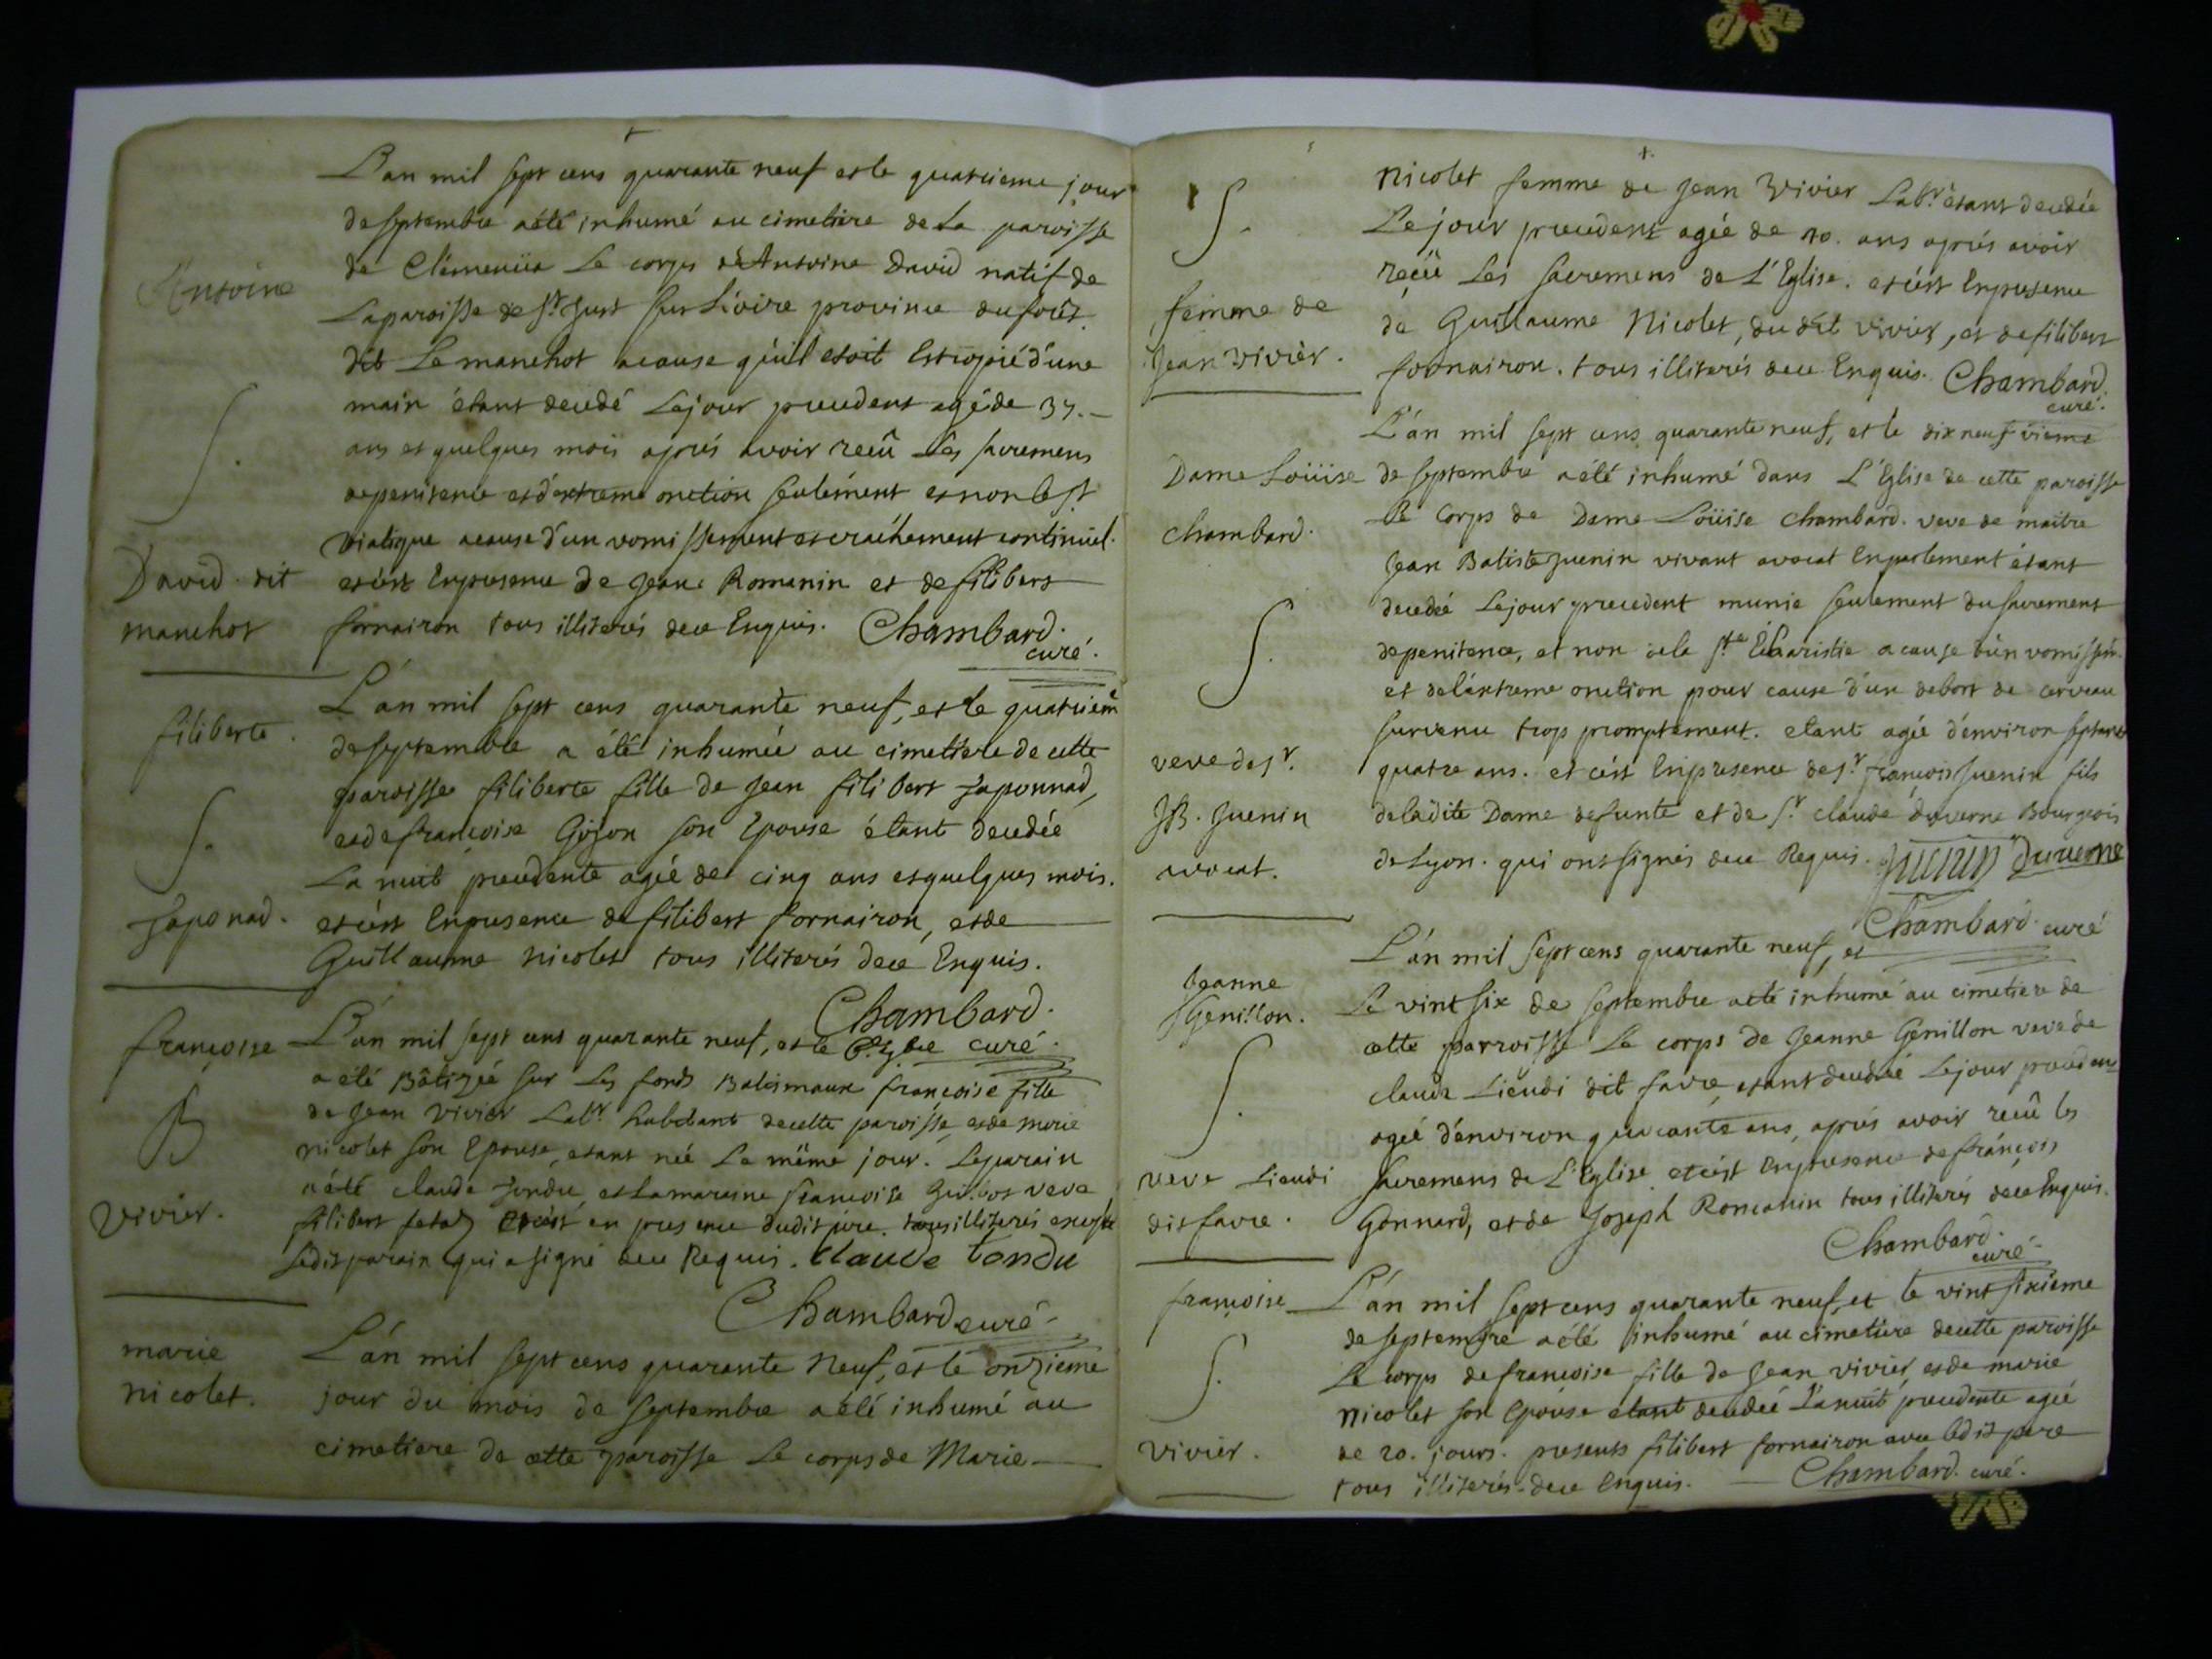 L'an mil sept cens quarante neuf et le quatrieme jour
de septembre a été inhumé au cimetiere de la paroisse
Antoine
de Clémencia Le corps d'Antoine David natif de
La paroisse de St Just sur Loire province du forêt
dit Le manchot acause qu'il etoit Estropié d'une
main étant decedé Le jour precedent agé de 37.
S.
ans et quelques mois aprés avoir reçû Les sacremens
de penitence et d'extreme onction seulement et non le St
viatique acause d'un vomissement et crachement continuel.
David dit
et c'est En presence de Jean Romanin et de filibert
manchot
fornairon tous illiterés de ce Enquis. Chambard.
curé.
L'án mil sept cens quarante neuf, et le quatriem
filiberte.
de septembre a été inhumée au cimetiere de cette
paroisse filiberte fille de Jean filibert Japonnad,
S.
et de françoise Gojon son Epouse étant decedée
La nuit precedente agée de cinq ans et quelques mois.
Japonad.
et c'est En presence de filibert fornairon, et de
Guillaume Nicolet tous illiterés de ce Enquis.
Chambard.
françoise
L'án mil sept cens quarante neuf, et le 6e 7bre curé.
a été Bâtizée sur Les fonds Batismaux françoise fille
B
de Jean Vivier Labr habitant de cette paroisse, et de marie
nicolet son Epouse, etant née Le même jour. Le parain
a été claude Tondu, et La maraine françoise veve
Vivier.
filibert et c'est en presence dudit pere. tous illiterés excepté
Ledit parain qui a signé de ce Requis. Claude Tondu
Chambard curé
marie
L'án mil sept cens quarante Neuf, et le onzieme
nicolet.
jour du mois de septembre a été inhumé au
cimetiere de cette paroisse Le corps de Marie
S.
Nicolet femme de Jean Vivier Labr. étant decedée
Le jour precedent agée de 30. ans aprés avoir
reçû Les sacremens de L'Eglise. et c'est En presence
femme de
de Guillaume Nicolet, du dit vivier, et de filibert
Jean Vivier.
fornairon. tous illiterés de ce Enquis. Chambard.
curé.
L'án mil sept cens quarante neuf, et le dix neuf vieme
Dame Loüise
de septembre a été inhumé dans L'Eglise de cette paroisse
Chambard.
Le Corps de Dame Loüise Chambard. veve de maitre
Jean Batiste Juenin vivant avocat En parlement étant
decedée Le jour precedent munie seulement du sacrement
S.
de penitence, et non de la Ste Eûcaristie a cause d'un vomissem.
et de l'extreme onction pour cause d'un debort de cerveau
survenu trop promptement. etant agée d'environ septante
veve de Sr.
quatre ans. et c'est En presence de Sr. françois Juenin fils
JB. Juenin
de ladite Dame defunte et de Sr. claude duverne Bourgeois
avocat.
de Lyon. qui ont signés de ce Requis. Juenin Duverne
Chambard curé
L'án mil sept cens quarante neuf, et
Jeanne
Le vint six de septembre a été inhumé au cimetiere de
Genillon.
cette parroisse Le corps de Jeanne Génillon veve de
claude Lieudi dit favre, etant decedée Le jour preceden
S.
agée d'environ quarante ans, aprés avoir recû les
veve Lieudi
sacremens de L'Eglise et c'est En presence de françois
dit favre.
Gonnard, et de Joseph Romanin tous illiterés de ce Enquis.
Chambard.
curé
françoise
L'án mil sept cens quarante neuf, et le vint sixième
de septembre a été inhumé au cimetiere de cette paroisse
S.
Le corps de françoise fille de Jean Vivier, et de marie
Nicolet son Epouse etant decedée La nuit precedente agée
Vivier.
de 20. jours. presents filibert fornairon avec ledit pere
tous illiterés de ce Enquis. Chambard. curé.